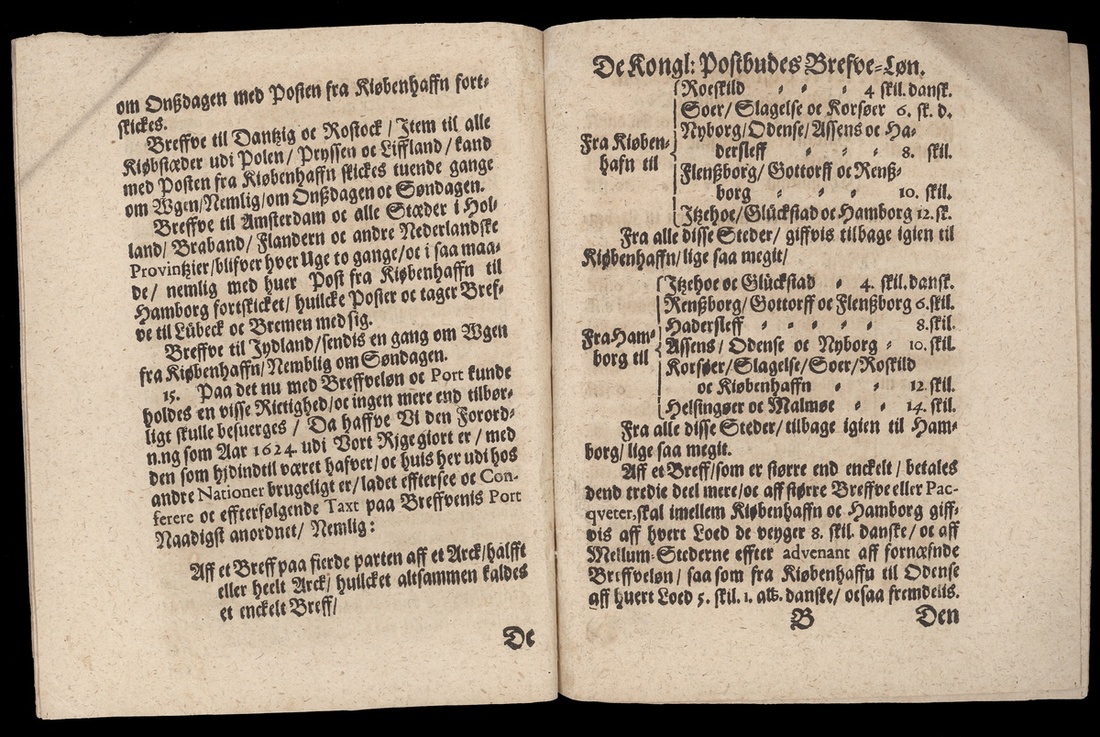 om Onßdagen med Posten fra Kiøbenhaffn fort-
skickes.
Breffve til Dantzig oc Rostock / Item til alle
Kiøbstæder udi Polen / Pryssen oc Liffland / kand
med Posten fra Kiøbenhaffn skickes tuende gange
om Wgen/Nemlig/om Onßdagen oc Søndagen.
Breffve til Amsterdam oc alle Stæder i Hol-
land/ Braband/ Flandern oc andre Nederlandske
Provintzier/blifver hver Uge to gange/oc i saa maa-
de/ nemlig med huer Post fra Kiøbenhaffn til
Hamborg fortskicket/ huilcke Poster oc tager Bref-
ve til Lübeck oc Bremen med sig.
Breffve til Jydland/sendis en gang om Wgen
fra Kiøbenhaffn/Nemblig om Søndagen.
15. Paa det nu med Breffveløn oc Port kunde
holdes en visse Rictighed/oc ingen mere end tilbør-
ligt skulle besuerges / Da haffve Vi den Forord-
n.ng som Aar 1624. udi Vort Rige giort er / med
den som hjdindtil været hafver/oc huis her udi hos
andre Nationer brugeligt er/ladet efftersee oc Con-
ferere oc effterfølgende Taxt paa Breffvenis Port
Naadigst anordnet/ Nemlig:
Aff et Breff paa fierde parten aff et Arck/hålfft
eller heelt Arck/ huilcket altsammen kaldes
et enckelt Breff/
De
De Kongl: Postbudes Brefve-Løn.
Fra Kiøben-
hafn til
Roeskild 4 skil. dansk.
Soer/ Slagelse oc Korsøer 6. sk. d.
Nyborg/Odense/Assens oc Ha-
dersleff 8. skil.
Flenßborg/ Gottorff oc Renß-
borg 10. skil.
Jtzehoe/Glückstad oc Hamborg 12. sk.
Fra alle disse Steder/ giffvis tilbage igien til
Kiøbenhaffn/ lige saa megit/
Fra Ham-
borg til
Jtzehoe oc Glückstad 4. skil. dansk.
Renßborg/ Gottorff oc Flenßborg 6. skil.
Hadersleff 8. skil.
Assens/ Odense oc Nyborg 10. skil.
Korsøer/Slagelse/Soer/Roskild
oc Kiøbenhaffn 12. skil.
Helsingøer oc Malmøe 14. skil.
Fra alle disse Steder/ tilbage igien til Ham-
borg/ lige saa megit.
Aff et Breff/som er større end enckelt / betales
dend tredie deel mere/oc aff større Breffve eller Pac-
qveter, skal imellem Kiøbenhaffn oc Hamborg giff-
vis aff hvert Loed de veyger 8. skil. danske/ oc aff
Mellum-Stederne effter advenant aff fornæfnde
Breffveløn/ saa som fra Kiøbenhaffn til Odense
aff huert Loed 5. skil. 1. alb. danske/ oc saa fremdelis.
B Den